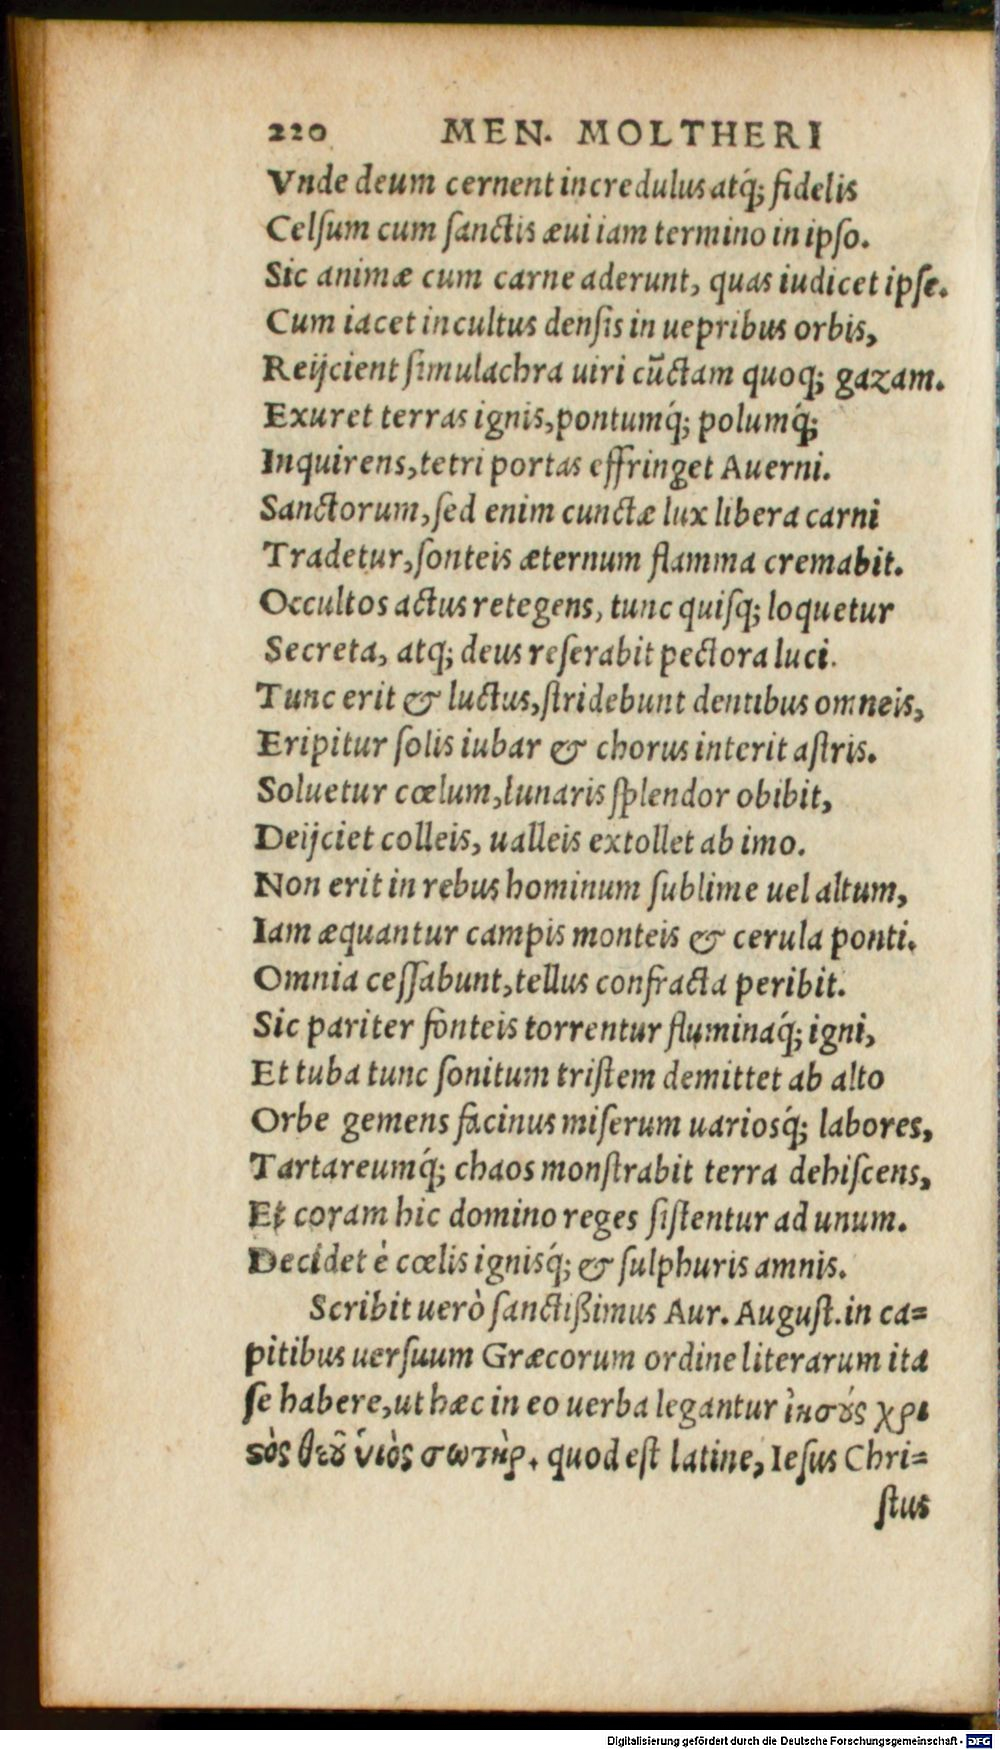 220 MEN. MOLTHERI
Vnde deum cernent incredulus atq́; fidelis
Celſum cum ſanctis æui iam termino in ipſo.
Sic animæ cum carne aderunt, quas iudicet ipſe.
Cum iacet incultus denſis in uepribus orbis,
Reijcient ſimulachra uiri cūctam quoq; gazam.
Exuret terras ignis, pontumq́; polumq́;
Inquirens, tetri portas effringet Auerni.
Sanctorum, ſed enim cunctæ lux libera carni
Tradetur, ſonteis æternum flamma cremabit.
Occultos actus retegens, tunc quiſq; loquetur
Secreta, atq; deus reſerabit pectora luci.
Tunc erit & luctus, ſtridebunt dentibus omneis,
Eripitur ſolis iubar & chorus interit aſtris.
Soluetur cœlum, lunaris ſplendor obibit,
Deijciet colleis, ualleis extollet ab imo.
Non erit in rebus hominum ſublime uel altum,
Iam æquantur campis monteis & cerula ponti.
Omnia ceſſabunt, tellus confracta peribit.
Sic pariter fonteis torrentur fluminaq́; igni,
Et tuba tunc ſonitum triſtem demittet ab alto
Orbe gemens facinus miſerum uarioſq́; labores,
Tartareumq́; chaos monſtrabit terra dehiſcens,
Et coram hic domino reges ſiſtentur ad unum.
Decidet è cœlis igniſq́; & ſulphuris amnis.
Scribit uerò ſanctißimus Aur. Auguſt. in ca=
pitibus uerſuum Græcorum ordine literarum ita
ſe habere, ut hæc in eo uerba legantur ἰησοῦς χρι
ϛὸς θεοῦ ὑιὸς σωτὴρ. quod eſt latine, Ieſus Chri=
ſtus
Digitalisierung gefördert durch die Deutsche Forschungsgemeinschaft - DFG